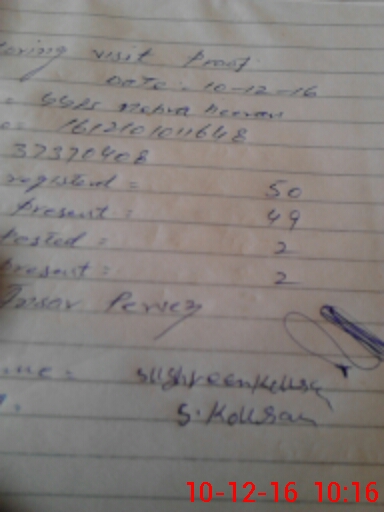 oring visit Proof
Date: 10-12-16
GGPS
1612101011648
37370408
registered = 50
present = 49
Posted = 2
present = 2
Pervez
me:
S. Kousar
10-12-16 10:16